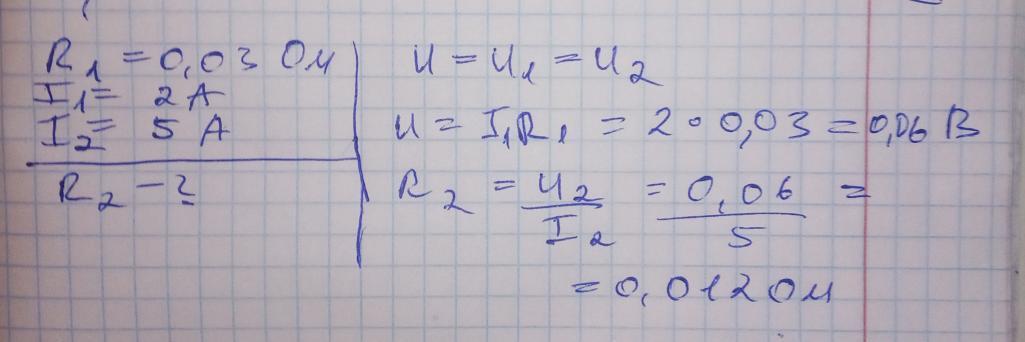 R₁ = 0,03 Ом
I₁ = 2 А
I₂ = 5 А
R₂ - ?
U = U₁ = U₂
U = I₁R₁ = 2 • 0,03 = 0,06 В
R₂ = U₂/I₂ = 0,06/5 =
= 0,012 Ом